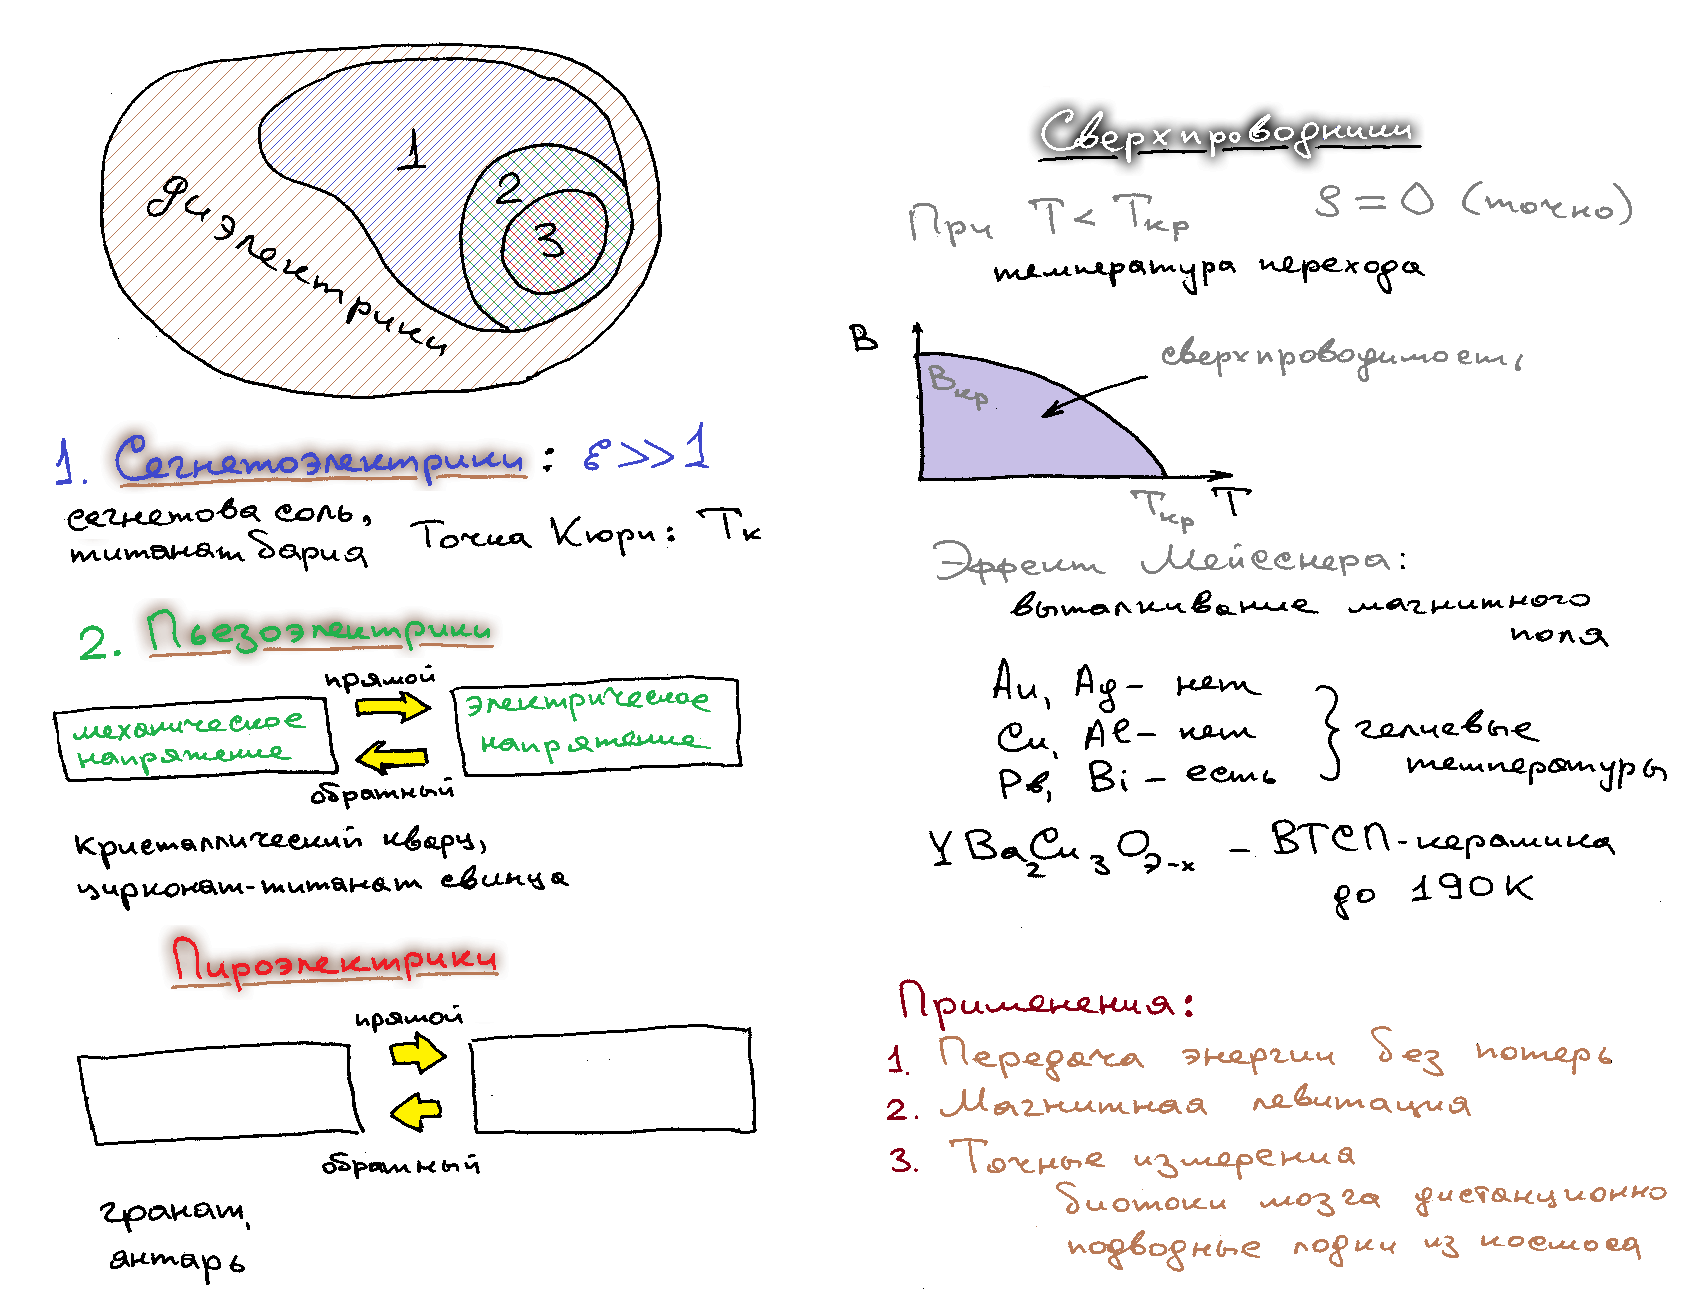 диэлектрики
1
2
3
1. Сегнетоэлектрики: ε>>1
сегнетова соль,
титанат бария
Точка Кюри: Тк
2. Пьезоэлектрики
прямой
механическое
напряжение
электрическое
напряжение
обратный
Кристаллический кварц,
цирконат-титанат свинца
Пироэлектрики
прямой
обратный
гранат,
янтарь
Сверхпроводники
При T < Tкр ρ = 0 (точно)
температура перехода
B
Bкр
сверхпроводимость
Tкр
T
Эффект Мейсснера:
выталкивание магнитного
поля
Au, Ag - нет
Cu, Al - нет
Рв, Bi - есть
гелиевые
температуры
YBa2Cu3O7-x - ВТСП-керамика
до 190К
Применения:
1. Передача энергии без потерь
2. Магнитная левитация
3. Точные измерения
биотоки мозга дистанционно
подводные лодки из космоса